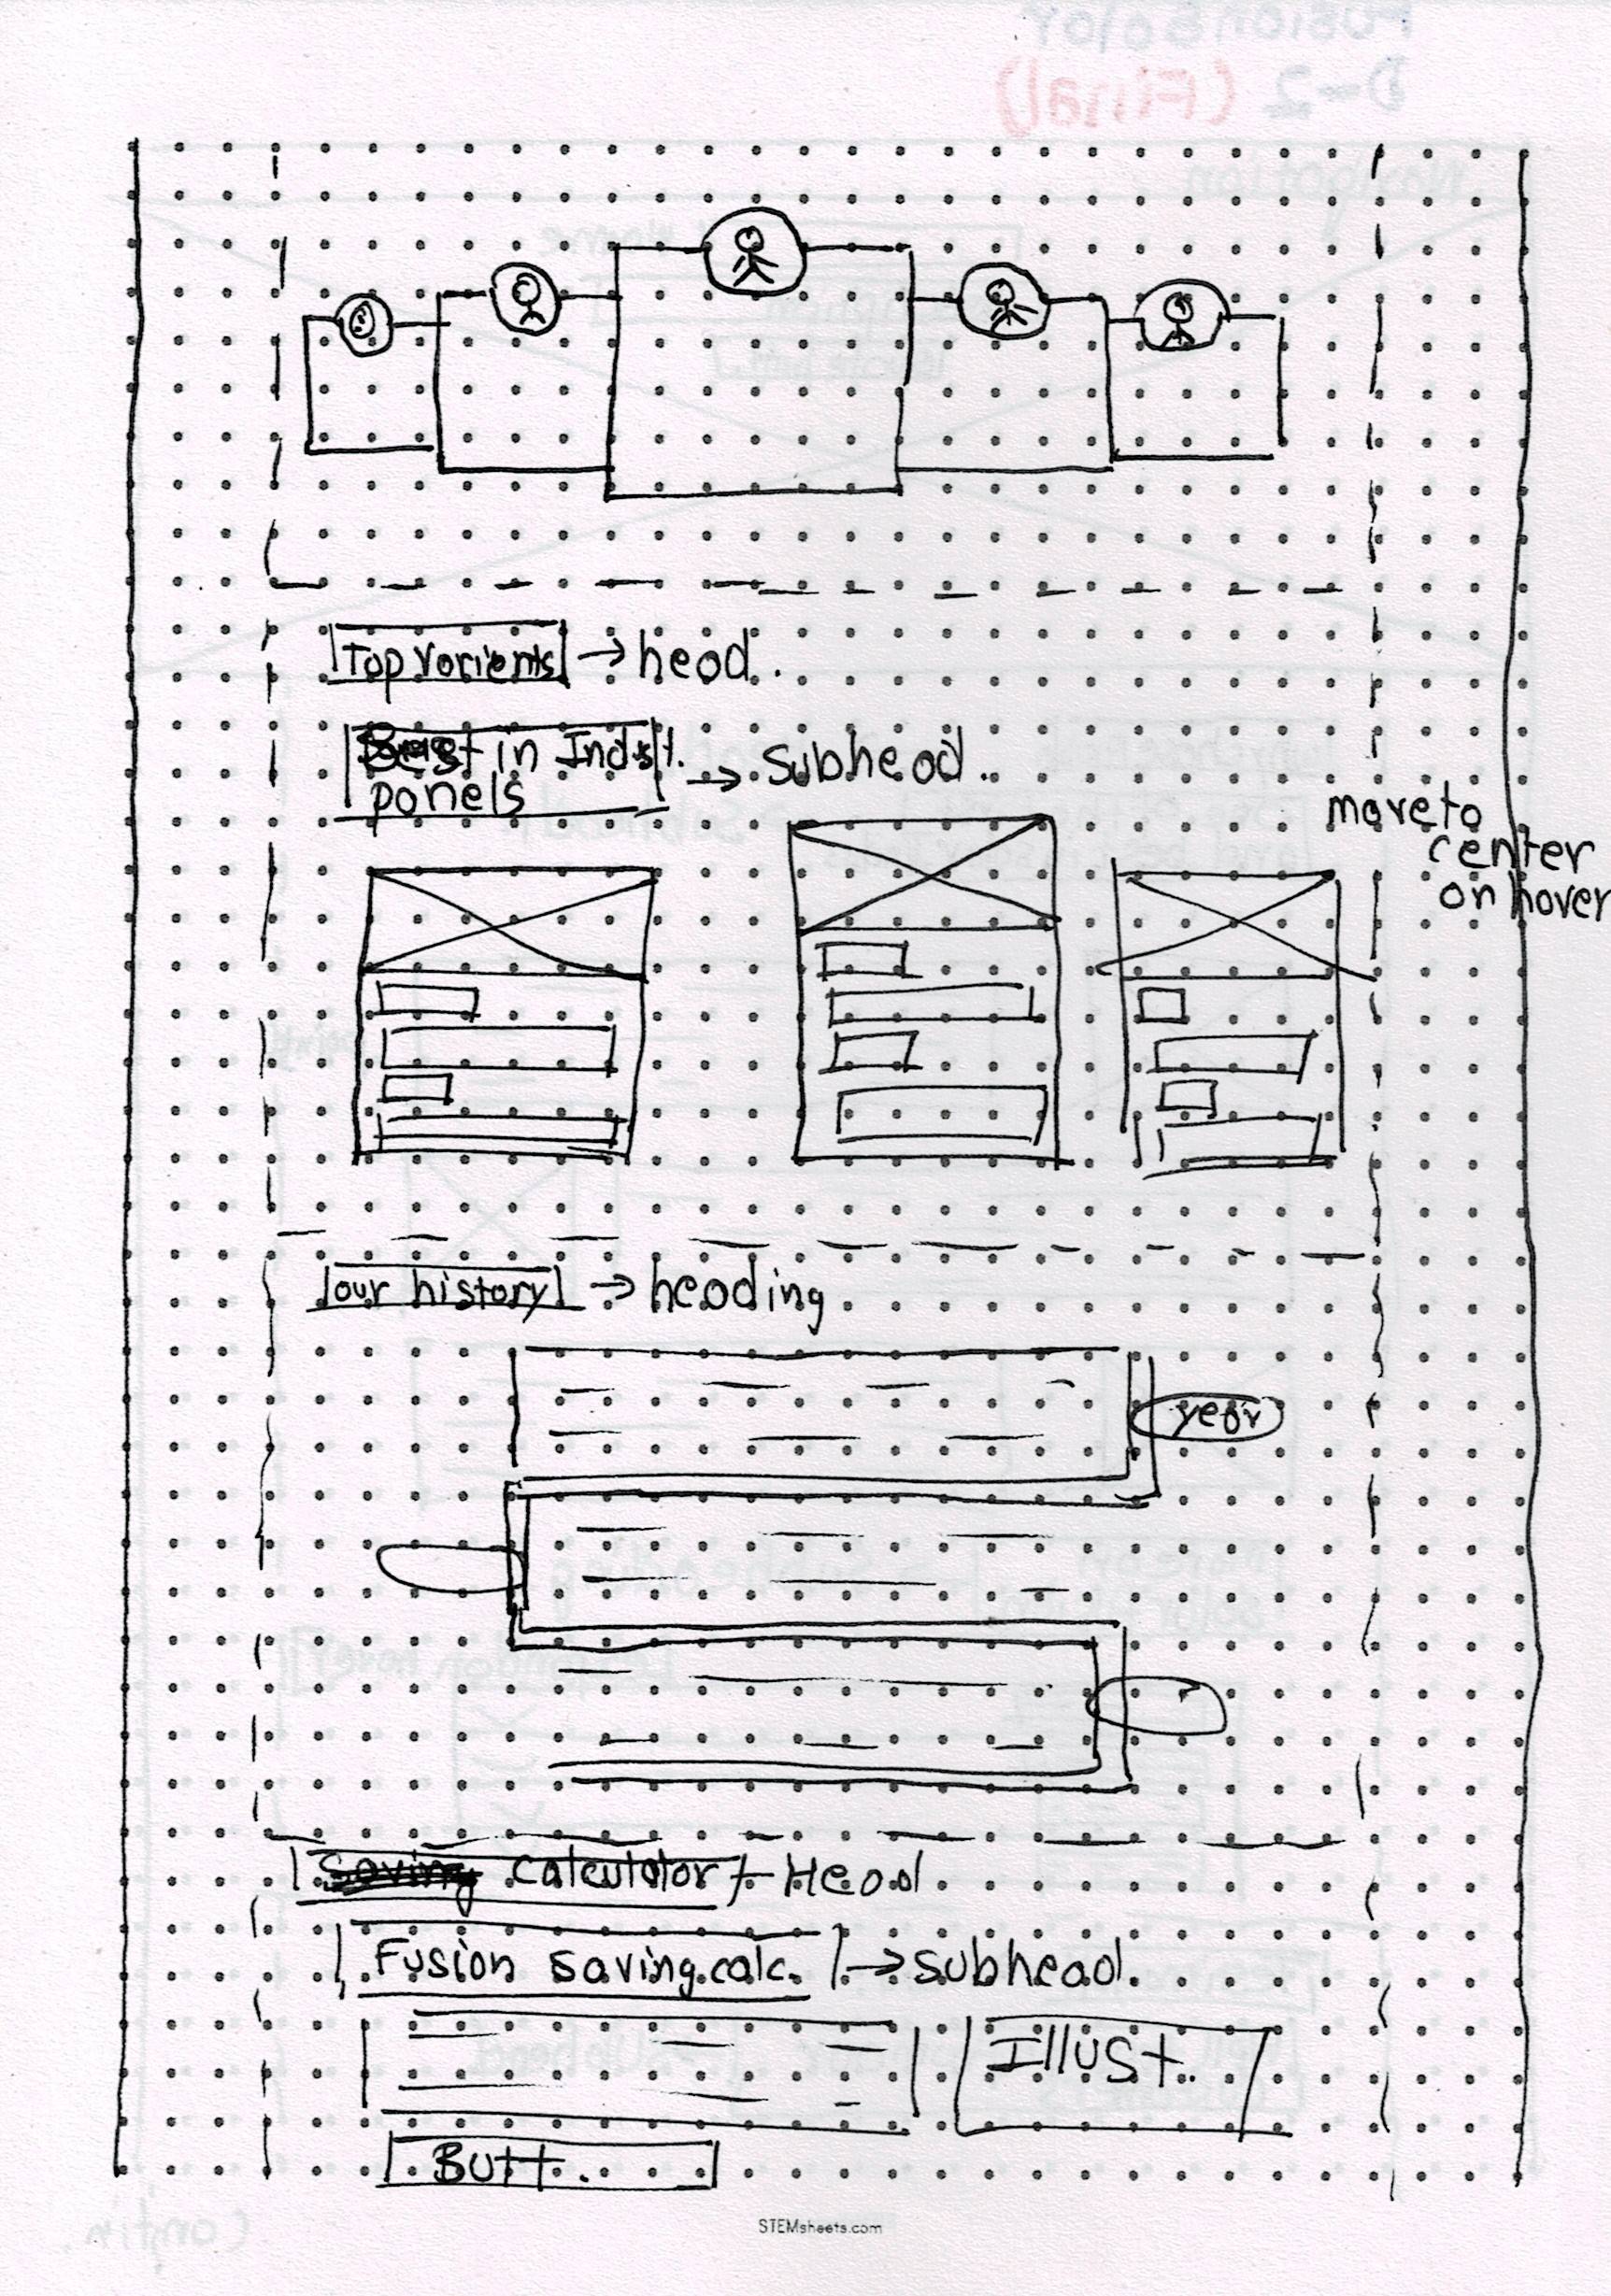 Top varients → head.
Best in Indst.
panels → subhead..
move to
center
on hover
our history → heading
year
Saving Calculator → Head
Fusion saving calc. → subhead.
Illust.
Butt..
STEMsheets.com